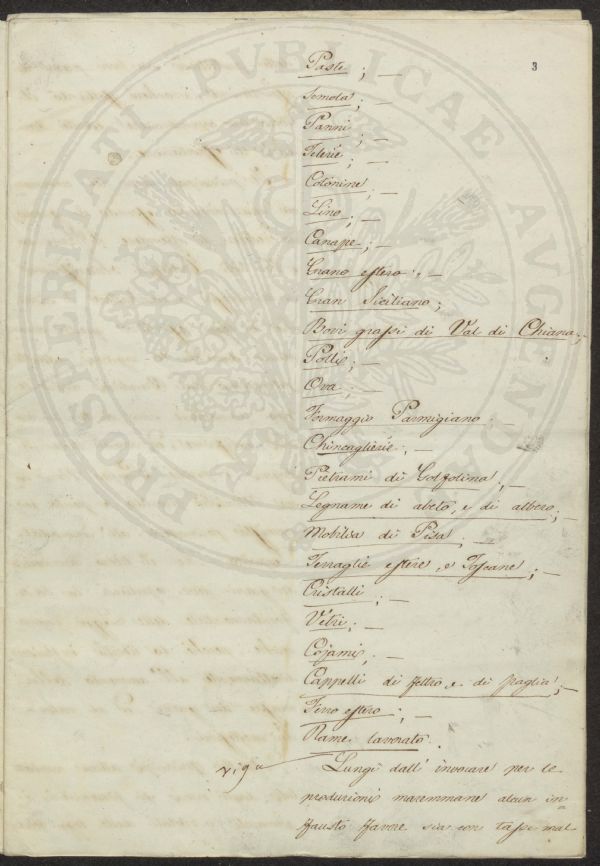 3
Paste; —
Semola; —
Panni; —
Telerie; —
Cotonine; —
Lino; —
Canape; —
Grano estero; —
Gran Siciliano;
Bovi grassi di Val di Chiana;
Polli; —
Ova; —
Formaggio Parmigiano —
Chincaglierie; —
Pietrami di Golfolina; —
Legname di abeto, e di albero; —
Mobilia di Pisa; —
Terraglie estere, e Toscane; —
Cristalli; —
Vetri; —
Cojami; —
Cappelli di feltro, e di paglia; —
Ferro estero; —
Rame lavorato.
Lungi dall' invocare per le
produzioni maremmane alcun in=
fausto favore sia con tasse mal
PROSPERITATI PUBLICAE AUGENDAE